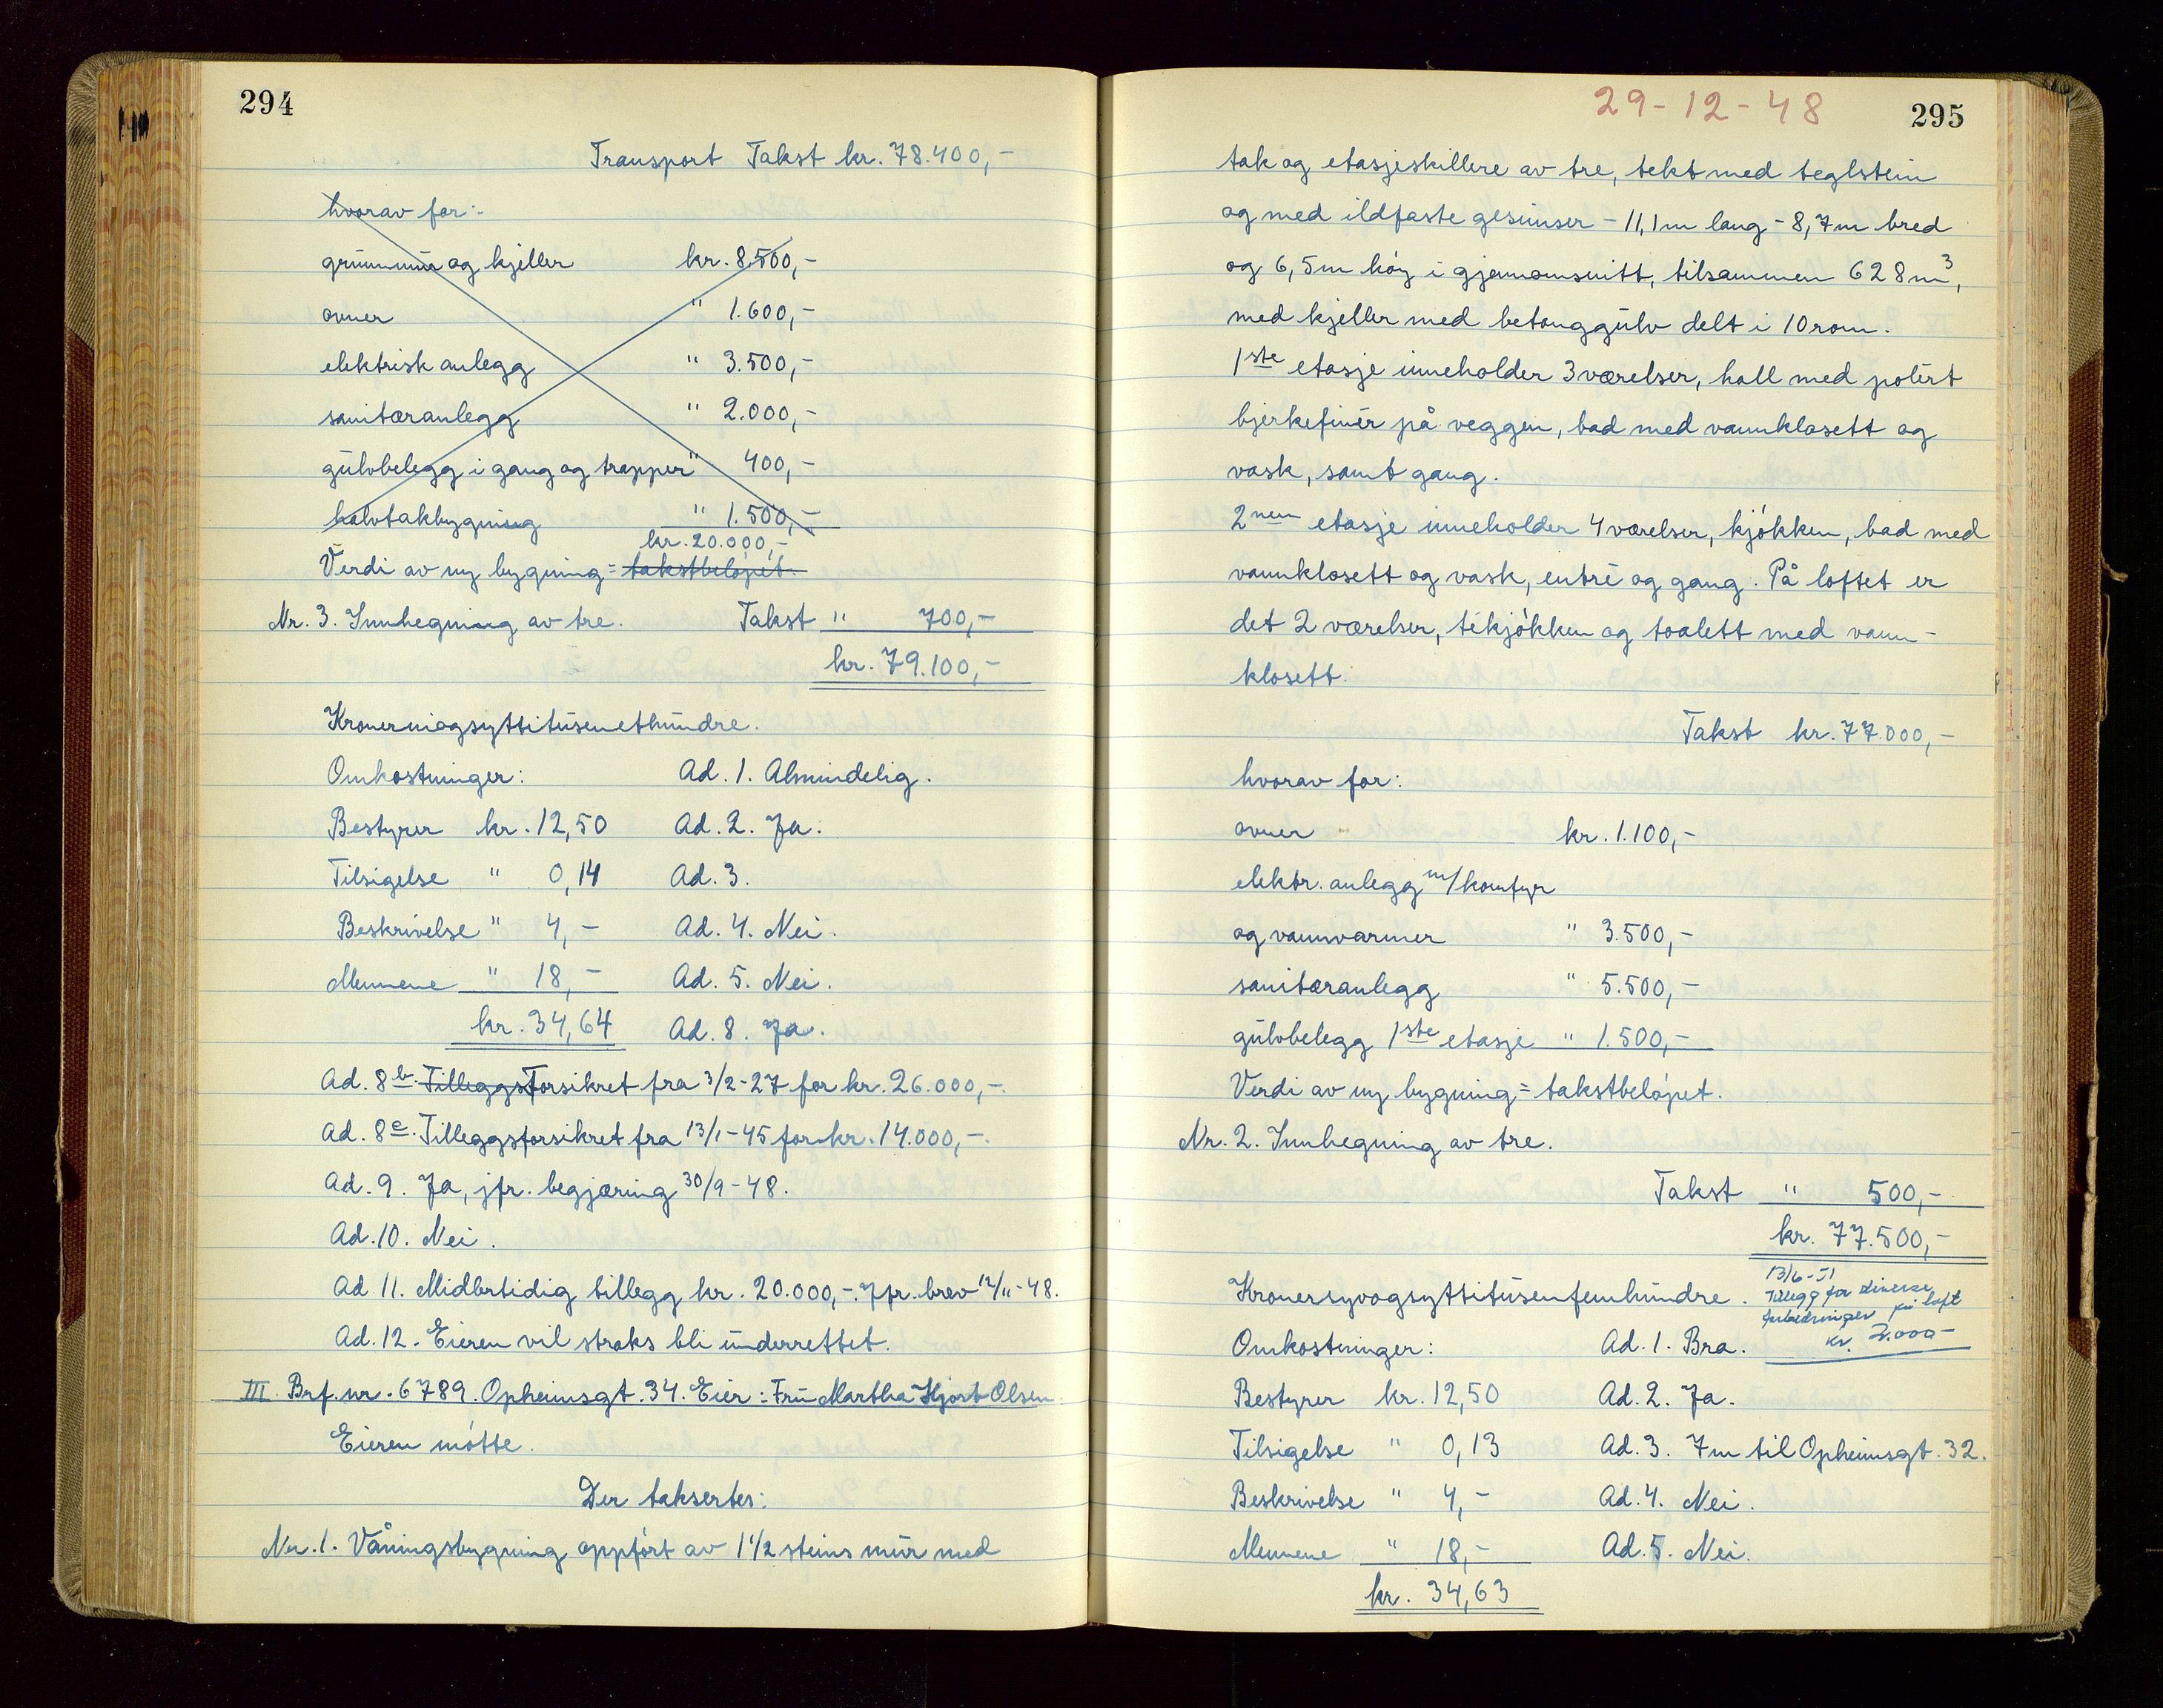 294
Transport Takst kr. 78.400,-
hvorav for:-
grunnmur og kjeller kr. 8.500,-
ovner " 1.600,-
elektrisk anlegg " 3.500,-
sanitæranlegg " 2.000,-
gulvbelegg i gang og trapper " 400,-
halvtakbygning " 1.500,-
kr. 20.000,-
Verdi av ny bygning = takstbeløpet.
Nr. 3. Innhegning av tre. Takst " 700,-
kr. 79.100,-
Kronerniogsyttitusenethundre.
Omkostninger: Ad. 1. Almindelig.
Bestyrer kr. 12,50 Ad. 2. Ja.
Tilsigelse " 0,14 Ad. 3.
Beskrivelse " 4,- Ad. 4. Nei.
Mennene " 18,- Ad. 5. Nei.
kr. 34,64 Ad. 8. Ja.
Ad. 8b. TilleggsForsikret fra 3/2-27 for kr. 26.000,-.
Ad. 8c. Tilleggsforsikret fra 13/1-45 for kr. 14.000,-.
Ad. 9. Ja, jfr. begjæring 30/9-48.
Ad. 10. Nei.
Ad 11. Midlertidig tillegg kr. 20.000,-. Jfr. brev 12/11-48.
Ad. 12. Eieren vil straks bli underrettet.
III. Brf. nr. 6789. Opheimsgt. 34. Eier: Fru Martha Hjort Olsen
Eieren møtte.
Der taksertes:
Nr. 1. Våningsbygning oppført av 1 1/2 steins mur med
29-12-48
295
tak og etasjeskillere av tre, tekt med teglstein
og med ildfaste gesimser - 11,1m lang - 8,7m bred
og 6,5m høy i gjennomsnitt, tilsammen 628 m3,
med kjeller med betonggulv delt i 10 rom.
1ste etasje inneholder 3 værelser, hall med polert
bjerkefinér på veggen, bad med vannklosett og
vask, samt gang.
2nen etasje inneholder 4 værelser, kjøkken, bad med
vannklosett og vask, entré og gang. På loftet er
det 2 værelser, tékjøkken og toalett med vann-
klosett.
Takst kr. 77.000,-
hvorav for:
ovner kr. 1.100,-
elektr. anlegg m/komfyr
og vannvarmer " 3.500,-
sanitæranlegg " 5.500,-
gulvbelegg 1ste etasje " 1.500,-
Verdi av ny bygning = takstbeløpet.
Nr. 2. Innhegning av tre.
Takst " 500,-
kr. 77.500,-
Kronersyvogsyttitusenfemhundre.
13/6-51
Tillegg for diverse
forbedringer på loft
kr. 2.000-
Omkostninger: Ad. 1. Bra.
Bestyrer kr. 12,50 Ad. 2. Ja.
Tilsigelse " 0,13 Ad. 3. 7m til Opheimsgt. 32.
Beskrivelse " 4,- Ad. 4. Nei.
Mennene " 18,- Ad. 5. Nei.
kr. 34,63